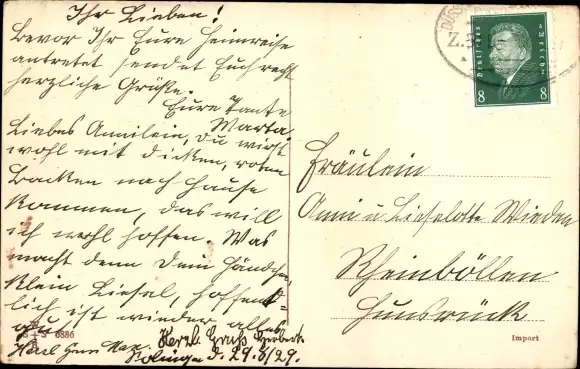 Ihr Lieben!
Bevor Ihr Eure Heimreise
antretet sendet Euch recht
herzliche Grüße.
Eure Tante
Marta.
Liebes Annilein, du wirst
wohl mit dicken, roten
Backen nach Hause
kommen, das will
ich wohl hoffen. Was
macht denn Dein Händchen,
klein Liesel, hoffent-
lich ist wieder alles
gut
Herzl. Gruß
Solingen d. 29.6/29.
6886
Deutsches Reich
8 8
Fräulein
Anni u Lieselotte Wieden
Rheinböllen
Hunsrück
Import